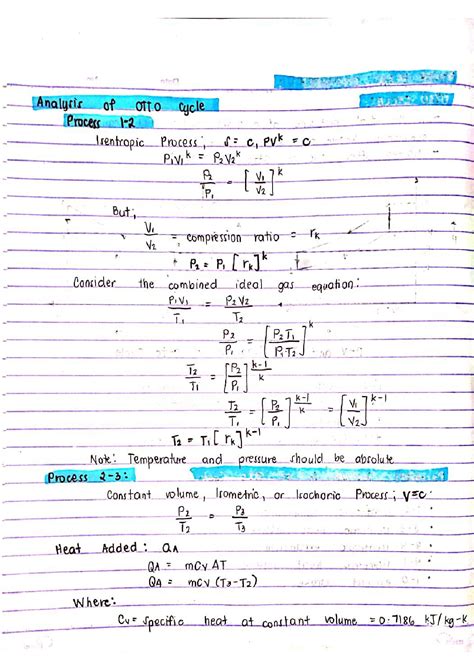 Analysis of OTTO cycle
Process 1-2
Isentropic Process; s = c, PV^k = c
P₁V₁^k = P₂V₂^k
P₂/P₁ = [V₁/V₂]^k
But;
V₁/V₂ = compression ratio = rk
P₂ = P₁ [rk]^k
Consider the combined ideal gas equation:
P₁V₁/T₁ = P₂V₂/T₂
P₂/P₁ = [P₂T₁/P₁T₂]^k
T₂/T₁ = [P₂/P₁]^(k-1/k)
T₂/T₁ = [P₂/P₁]^(k-1/k) = [V₁/V₂]^(k-1)
T₂ = T₁[rk]^(k-1)
Note: Temperature and pressure should be absolute
Process 2-3:
Constant volume, Isometric, or Isochoric Process; V=C
P₂/T₂ = P₃/T₃
Heat Added: QA
QA = mCv ΔT
QA = mCv (T₃-T₂)
Where:
Cv = specific heat at constant volume = 0.7186 kJ/kg-K